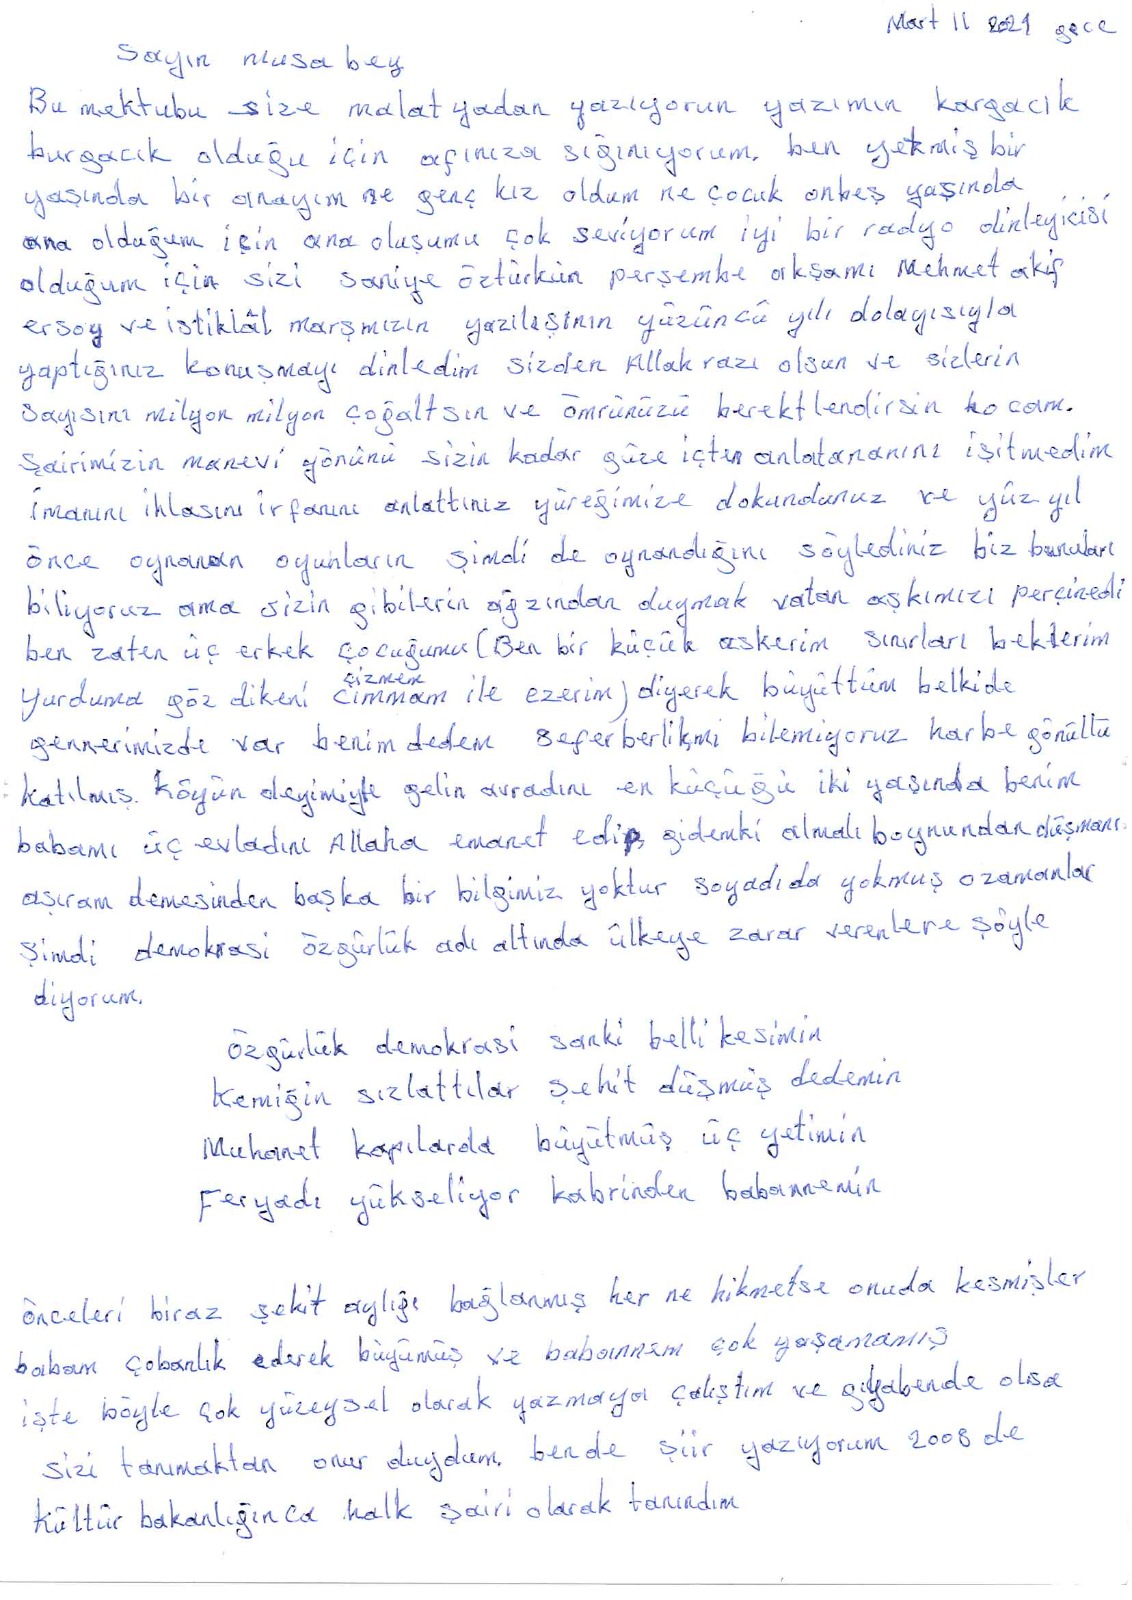 Mart 11 2021 gece
Sayın Musa bey
Bu mektubu size malatyadan yazıyorun yazımın kargacık
burgacık olduğu için afınıza sığınıyorum. ben yetmiş bir
yaşında bir anayım ne genç kız oldum ne çocuk onbeş yaşında
ana olduğum için ana oluşumu çok seviyorum iyi bir radyo dinleyicisi
olduğum için sizi Saniye öztürkün perşembe akşamı Mehmet akif
ersoy ve istiklâl marşmızın yazılışının yüzüncü yılı dolayısıyla
yaptığınız konuşmayı dinledim sizden Allah razı olsun ve sizlerin
sayısını milyon milyon çoğaltsın ve ömrünüzü berektlendirsin hocam.
şairimizin manevi yönünü sizin kadar güze içten anlatananını işitmedim
imanını ihlasını irfanını anlattınız yüreğimize dokundunuz ve yüz yıl
önce oynanan oyunların şimdi de oynandığını söylediniz biz bunuları
biliyoruz ama sizin gibilerin ağzından duymak vatan aşkımızı perçinedi
ben zaten üç erkek çocuğumu (Ben bir küçük askerim sınırları beklerim
çizmem
yurduma göz dikeni cimmam ile ezerim) diyerek büyüttüm belkide
gennerimizde var benim dedem seferberlikmi bilemiyoruz harbe gönüllü
katılmış. köyün deyimiyle gelin avradını en küçüğü iki yaşında benim
babamı üç evladını Allaha emanet edip gidemki almalı boynundan düşmanı
aşıram demesinden başka bir bilgimiz yoktur soyadıda yokmuş ozamanlar
şimdi demokrasi özgürlük adı altında ülkeye zarar verenlere şöyle
diyorum.
özgürlük demokrasi sanki belli kesimin
Kemiğin sızlattılar şehit düşmüş dedemin
Muhanet kapılarda büyütmüş üç yetimin
Feryadı yükseliyor kabrinden babannemin
önceleri biraz şehit aylığı bağlanmış her ne hikmetse onuda kesmişler
babam çobanlık ederek büyümüş ve babannem çok yaşamamış
işte böyle çok yüzeysel olarak yazmaya çalıştım ve gıyabende olsa
sizi tanımaktan onur duydum. bende şiir yazıyorum 2008 de
kültür bakanlığınca halk şairi olarak tanındım